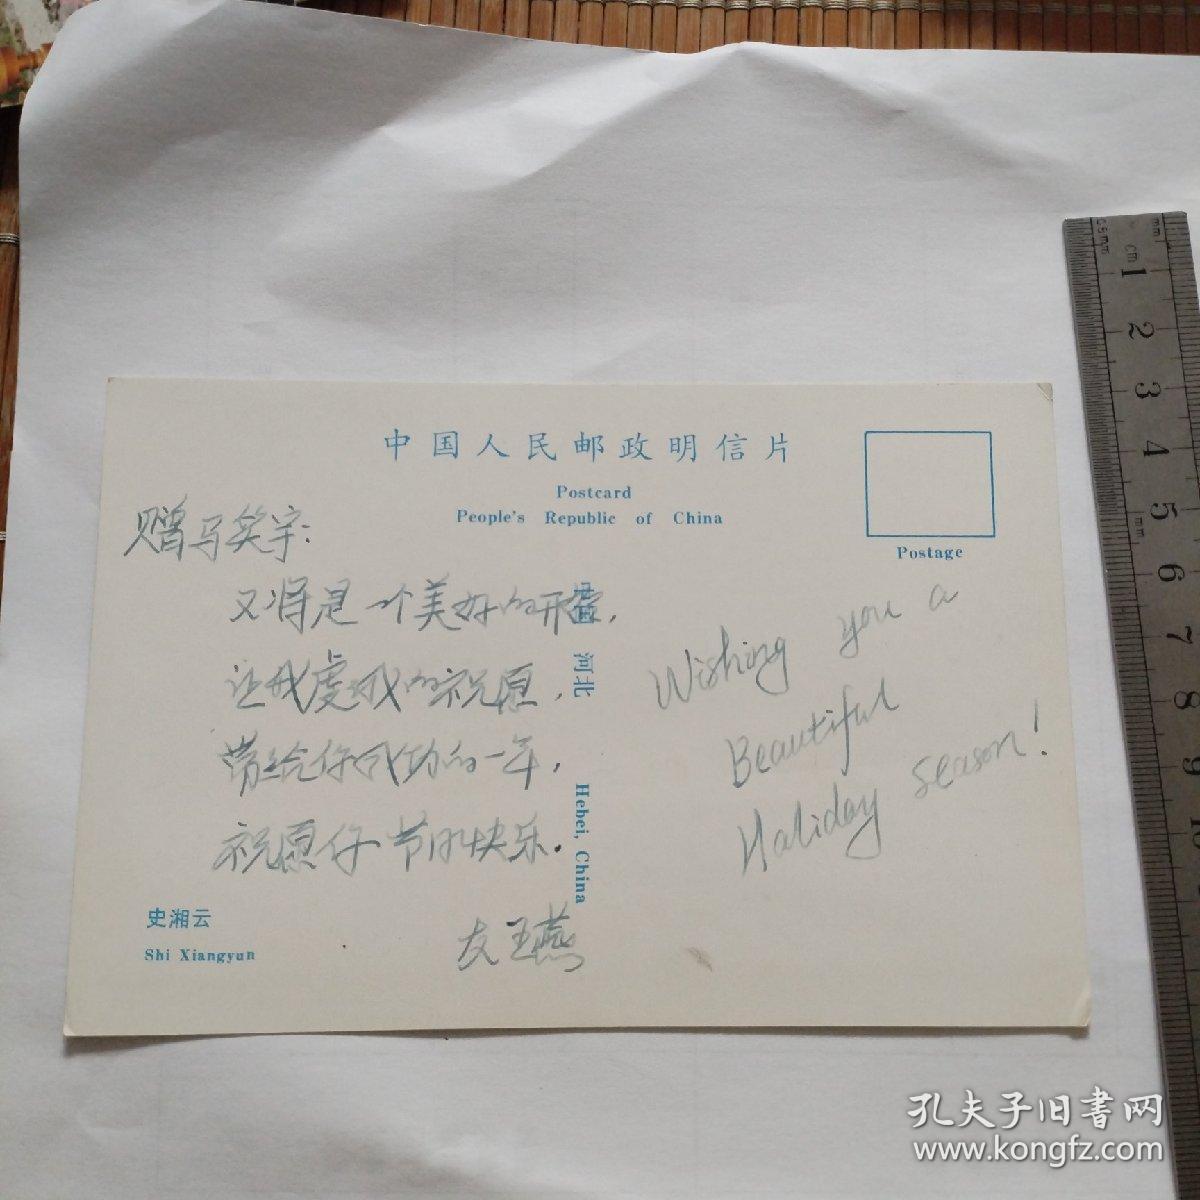 中国人民邮政明信片
Postcard
People's Republic of China
Postage
赠马笑宇:
又将是一个美好的开端,
让我虔诚的祝愿,
带给你成功的一年,
祝愿你节日快乐.
友王燕
Wishing you a
Beautiful
Haliday season!
中国 河北
Hebei, China
史湘云
Shi Xiangyun
0.5mm
mm
cm
1
2
3
4
5
mm
6
7
8
9
孔夫子旧书网
www.kongfz.com